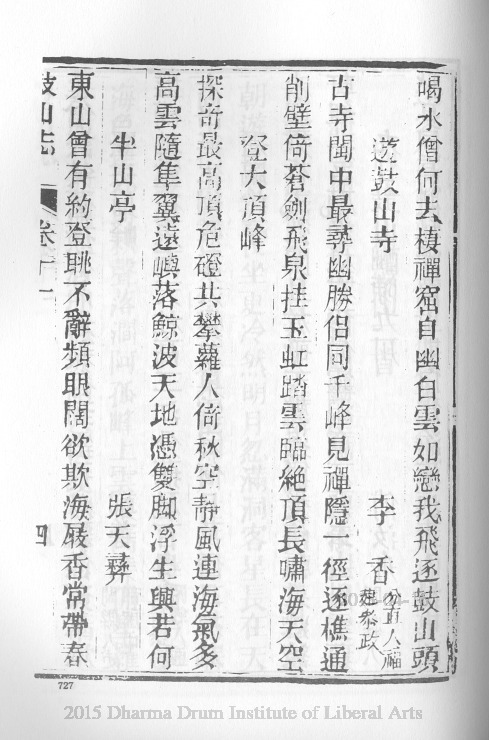 喝水僧何去棲禪窟自幽白雲如戀我飛逐鼓山頭
遊鼓山寺 李香
古寺閩中最尋幽勝侶同千峰見禪隱一徑逐樵通
削壁倚蒼劍飛泉挂玉虹踏雲臨絶頂長嘯海天空
登大頂峰
探奇最高頂危磴共攀蘿人倚秋空靜風連海氣多
高雲隨隼翼遠嶼落鯨波天地憑雙脚浮生與若何
半山亭 張天彝
東山曾有約登眺不辭頻眼闊欲欺海屐香常帶春
鼓山志 卷十一 四
727
2015 Dharma Drum Institute of Liberal Arts